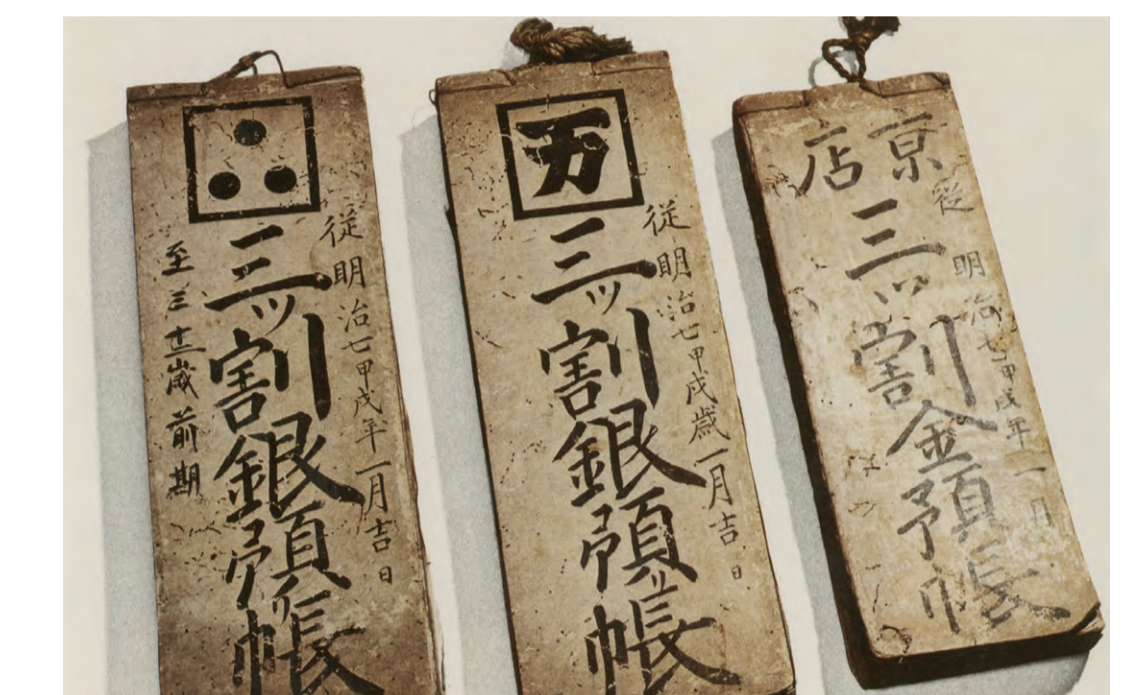 従明治七甲戌年一月吉日
三ッ割銀預帳
至三十二歳前期
万
従明治七甲戌歳一月吉日
三ッ割銀預帳
京店
従明治七甲戌年一月
三ッ割金預帳